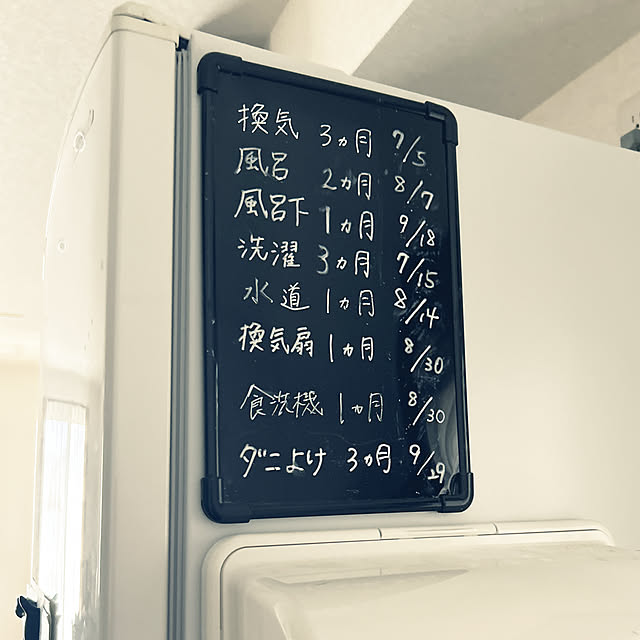 換気 3ヵ月 7/5
風呂 2ヵ月 8/7
風呂下 1ヵ月 9/18
洗濯 3ヵ月 7/15
水道 1ヵ月 8/14
換気扇 1ヵ月 8/30
食洗機 1ヵ月 8/30
ダニよけ 3ヵ月 9/29